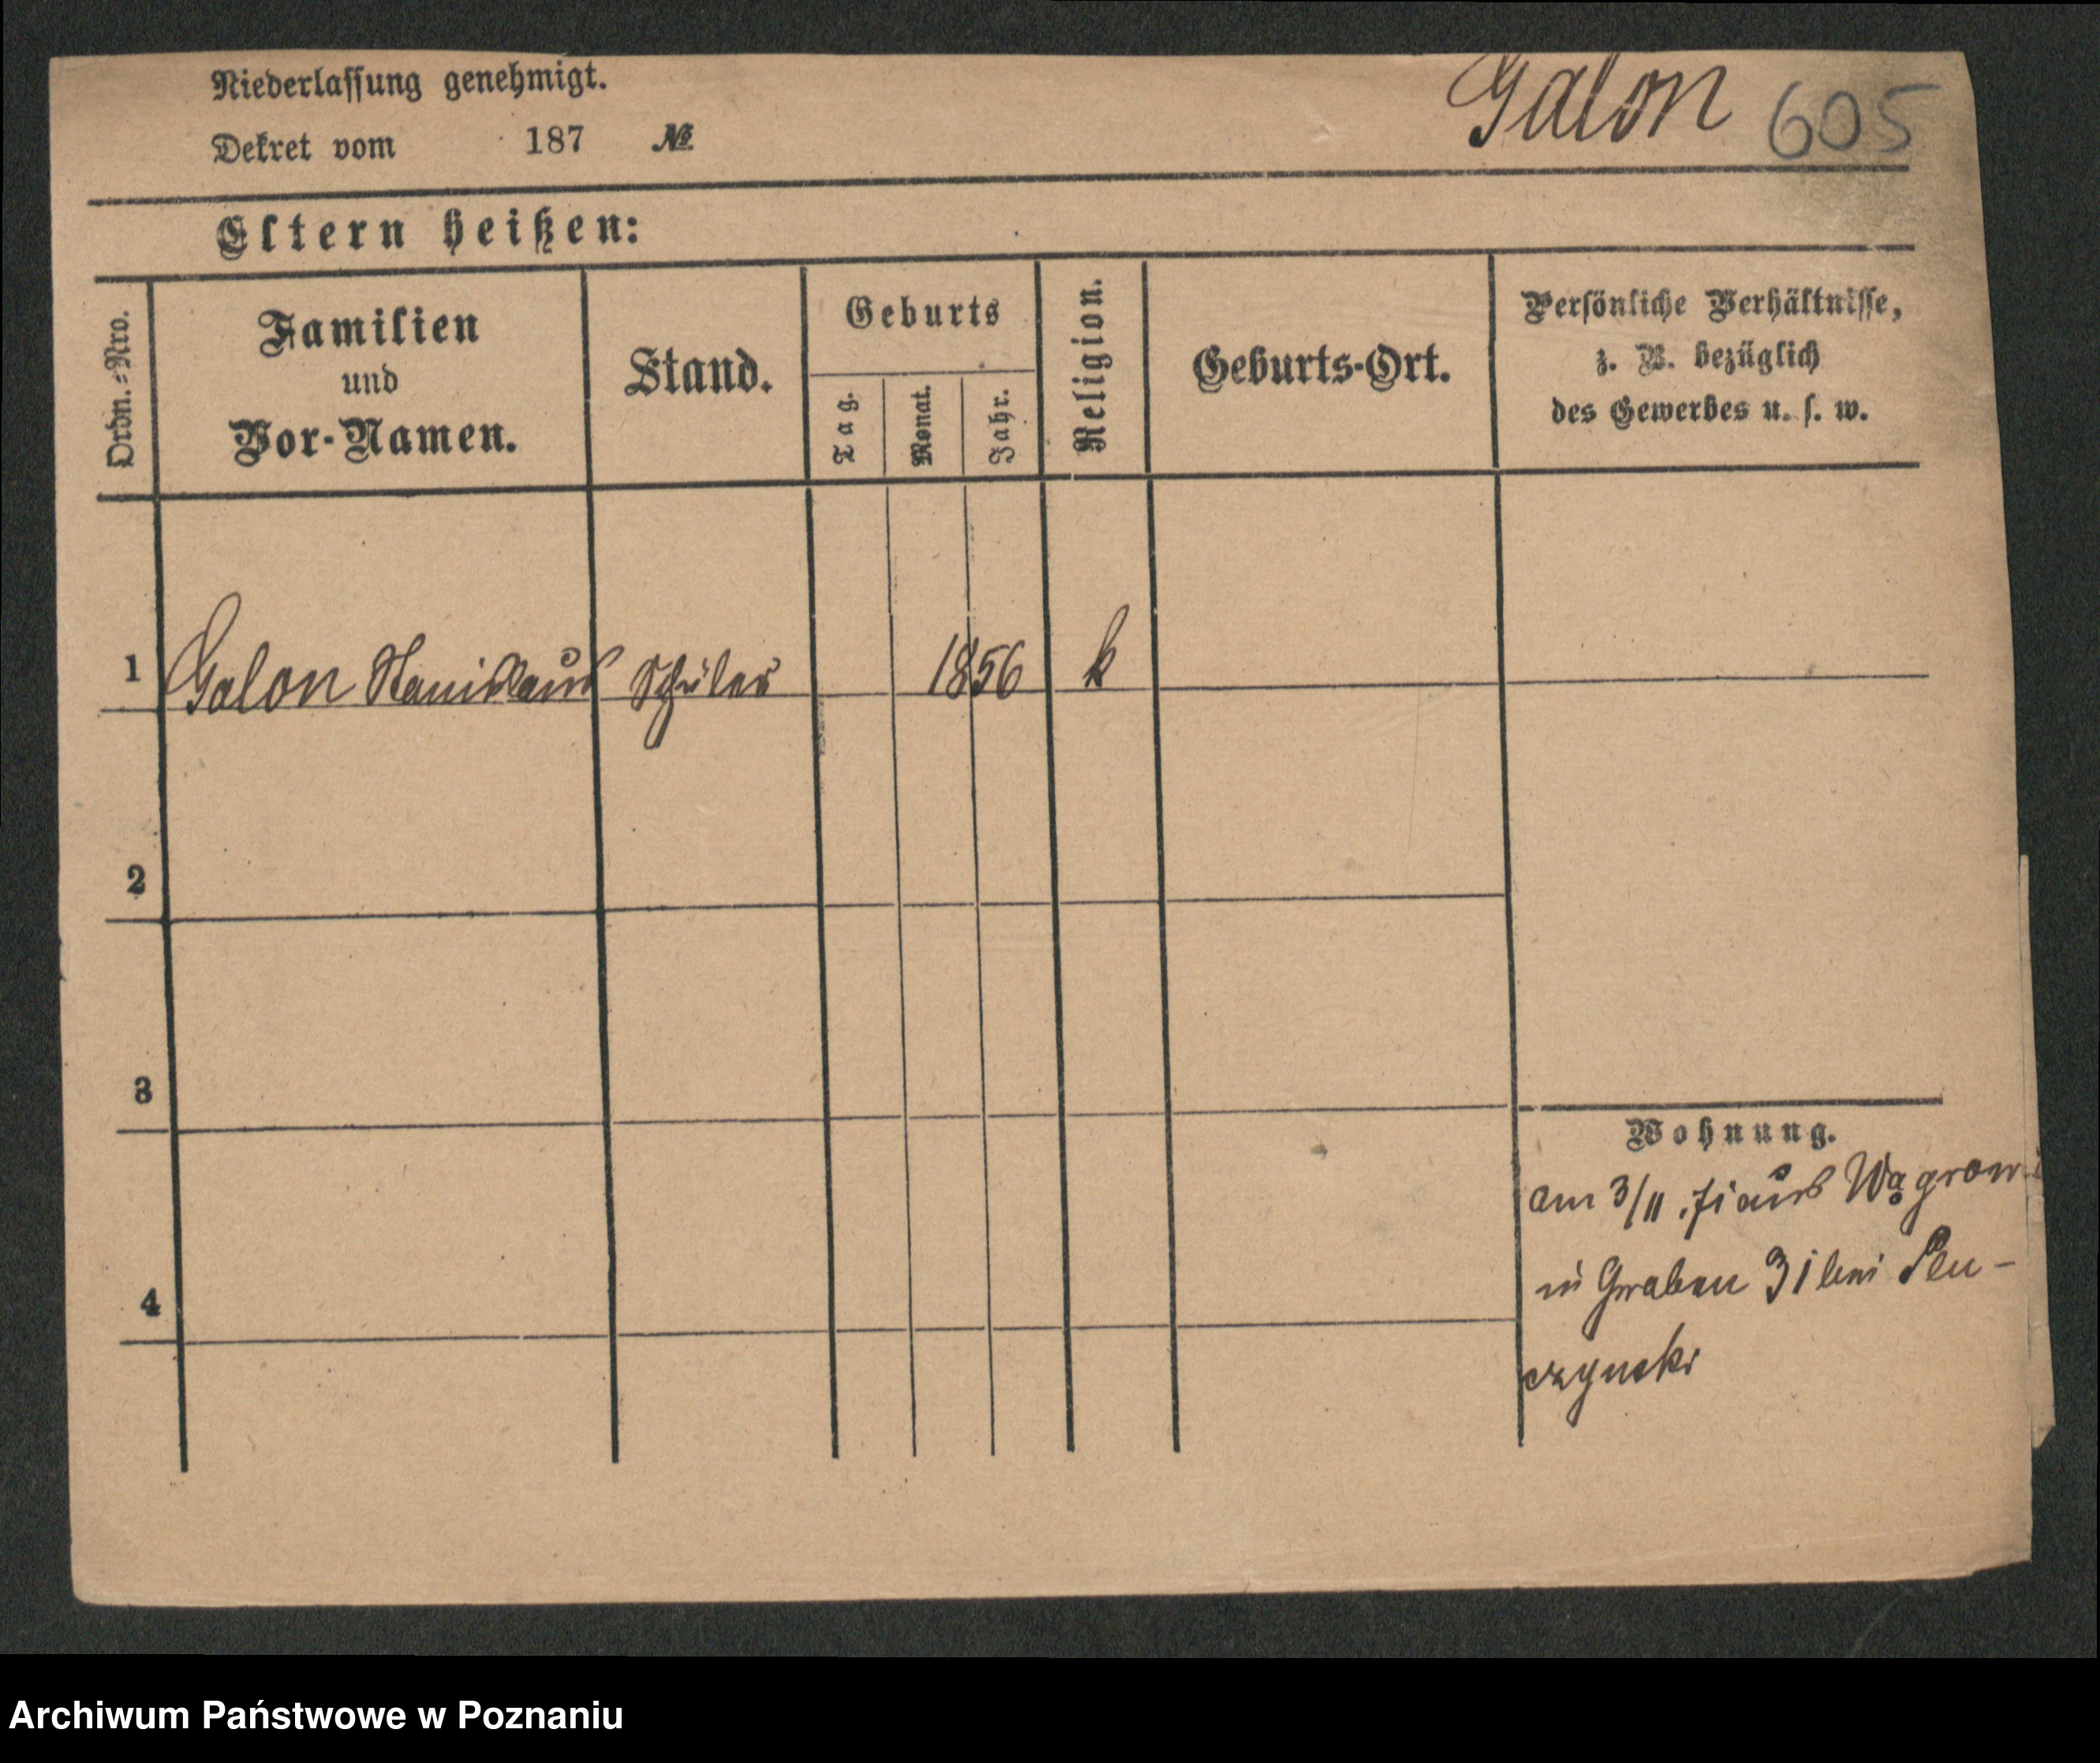 Niederlassung genehmigt.
Galon 605
Dekret vom 187 №
Eltern heißen:
Ordn.-Nro.
Familien
und
Vor-Namen.
Stand.
Geburts
Tag.
Monat.
Jahr.
Religion.
Geburts-Ort.
Persönliche Verhältnisse,
z. B. bezüglich
des Gewerbes u. s. w.
1 Galon Stanislaus Schüler 1856 k
2
3
4
Wohnung.
am 3/11 71 aus Wągrow
in Graben 31 bei
czynski
Archiwum Państwowe w Poznaniu